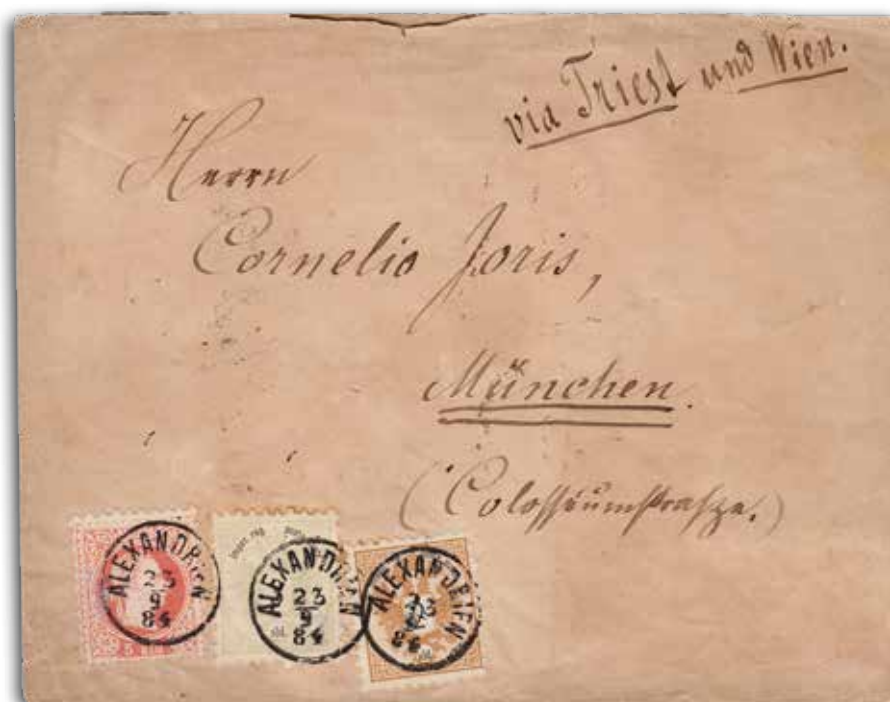 via Triest und Wien.
Herrn
Cornelio Joris,
München.
(Colosseumstrasse.)
ALEXANDRIEN
23
9
84
ALEXANDRIEN
23
9
84
ALEXANDRIEN
23
9
84
5